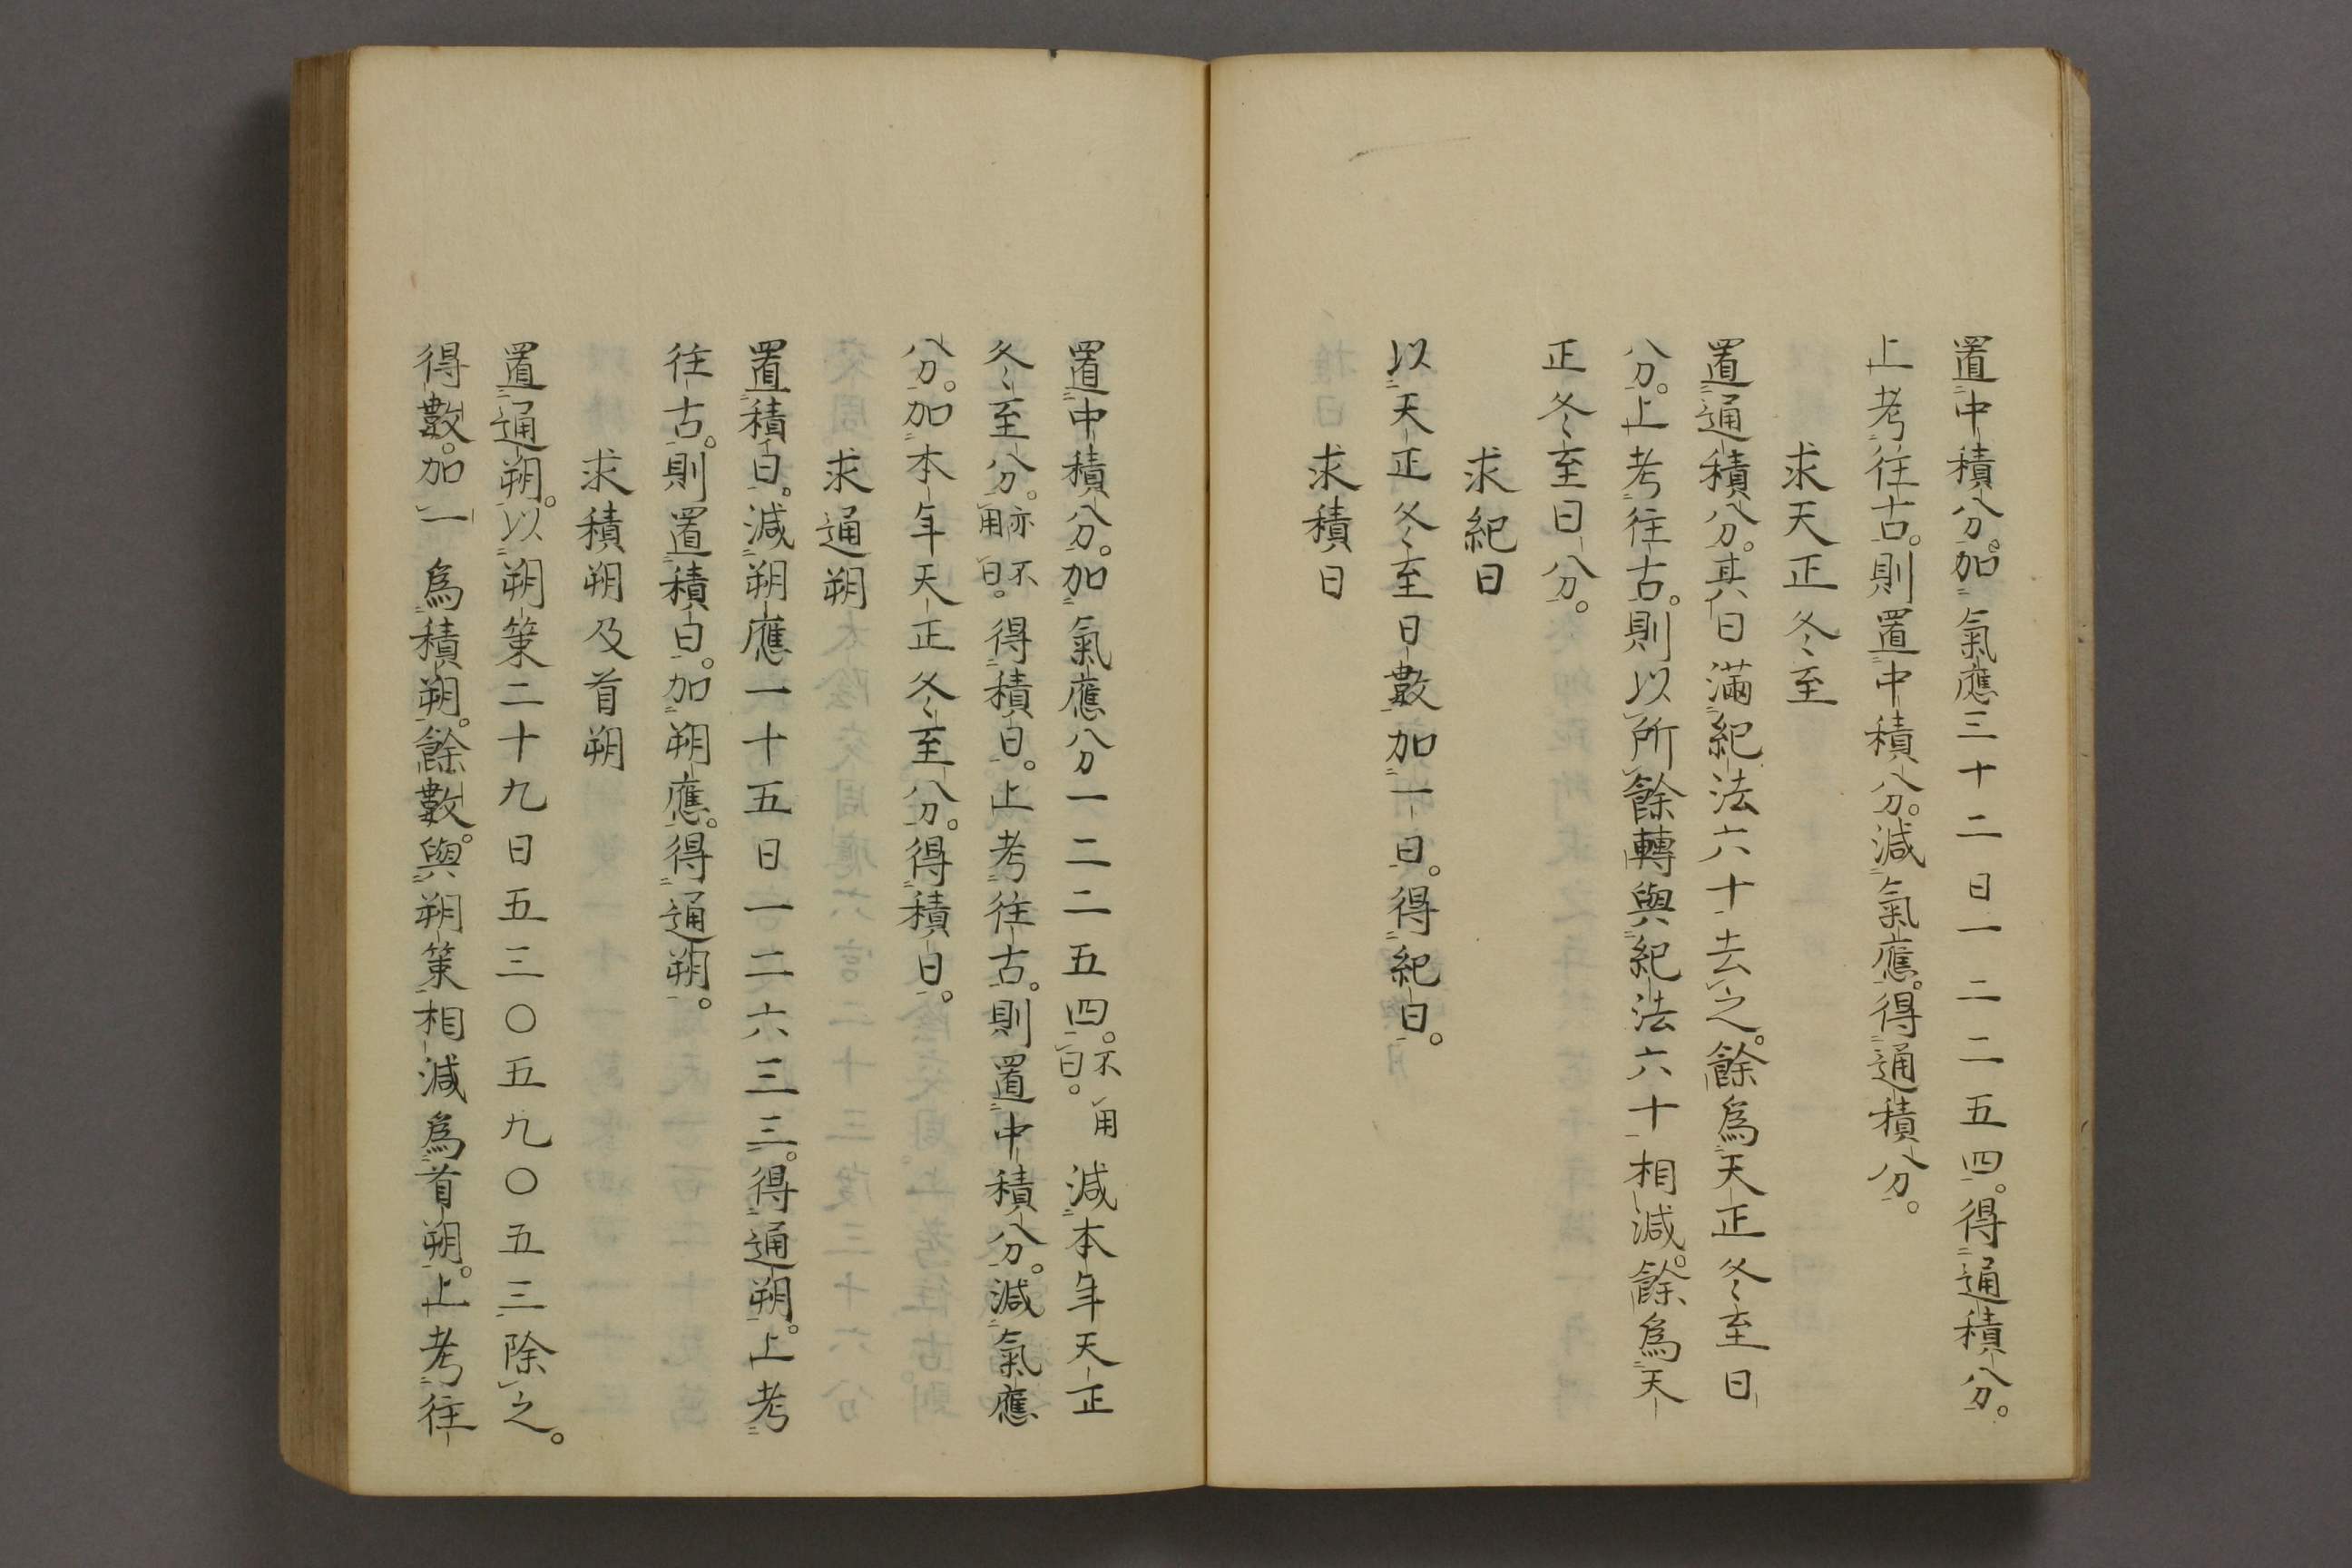 置中積分。加氣應三十二日一二二五四。得通積分。
上考往古。則置中積分。減氣應。得通積分。
求天正冬至
置通積分。其日滿紀法六十去之。餘爲天正冬至日
分。上考往古。則以所餘轉與紀法六十相減。餘爲天
正冬至日分。
求紀日
以天正冬至日數加一日。得紀日。
求積日
置中積分。加氣應分一二二五四。不用日。減本年天正
冬至分。亦不用日。得積日。上考往古。則置中積分。減氣應
分。加本年天正冬至分。得積日。
求通朔
置積日。減朔應一十五日一二六三三。得通朔。上考
往古。則置積日。加朔應。得通朔。
求積朔及首朔
置通朔。以朔策二十九日五三〇五九〇五三除之。
得數。加一爲積朔。餘數。與朔策相減爲首朔。上考往